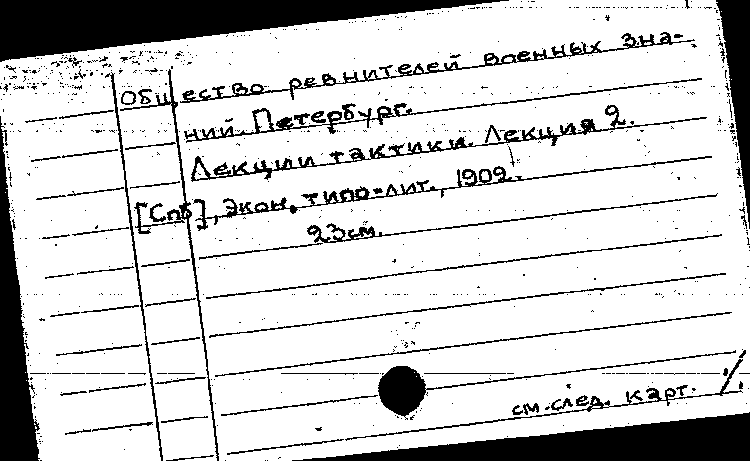 Общество ревнителей военных зна-
ний. Петербург.
Лекции тактики. Лекция 2.
[Спб], Экон. типо-лит., 1909.
23см.
см. след. карт. ./.